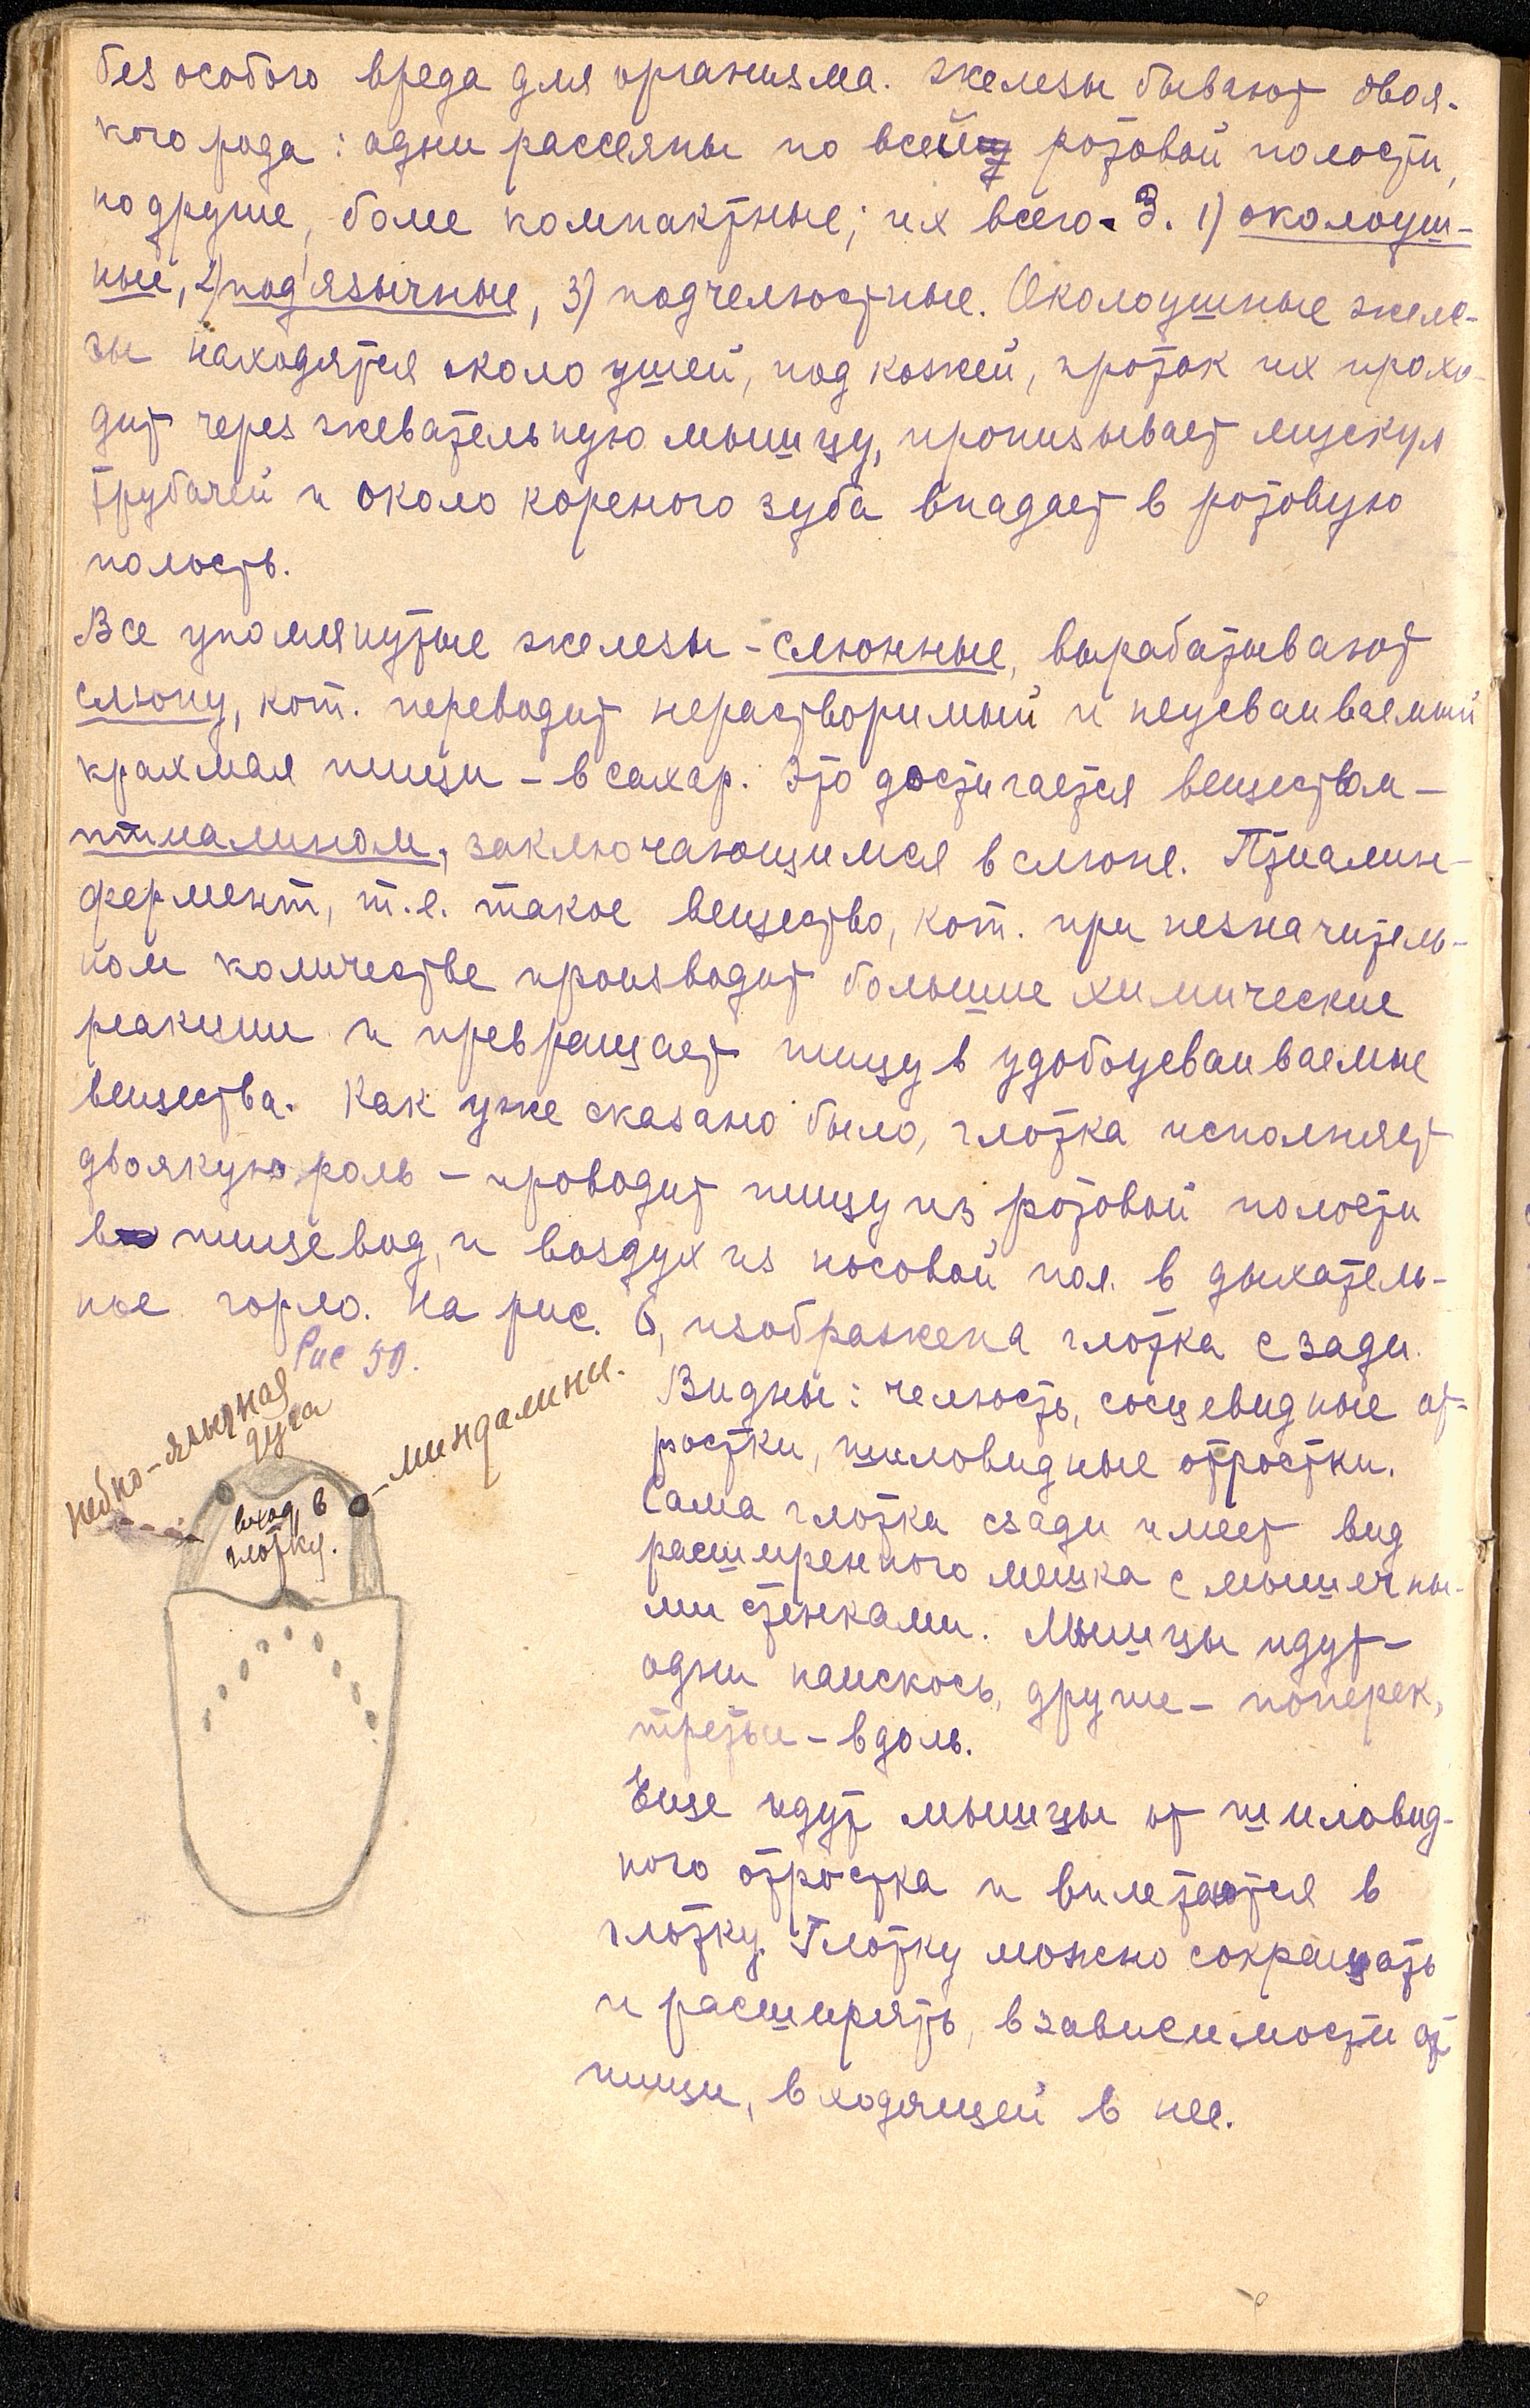 без особого вреда для организма. Железы бывают двоя-
кого рода: одни рассеяны по всей ротовой полости,
но другие, более компактные; их всего - 3. 1) околоуш-
ные, 2) под'язычные, 3) подчелюстные. Околоушные желе-
зы находятся около ушей, под кожей, проток их прохо-
дит через жевательную мышцу, пронизывает мускул
трубачей и около кореного зуба впадает в ротовую
полость.
Все упомянутые железы - слюнные, вырабатывают
слюну, кот. переводит нерастворимый и неусваиваемый
крахмал пищи - в сахар. Это достигается веществом -
птиалином, заключающимся в слюне. Птиалин -
фермент, т.е. такое вещество, кот. при незначитель-
ном количестве производит большие химические
реакции и превращает пищу в удобоусваиваемые
вещества. Как уже сказано было, глотка исполняет
двоякую роль - проводит пищу из ротовой полости
в пищевод, и воздух из носовой пол. в дыхатель-
ное горло. На рис. 6, изображена глотка сзади.
Рис 59.
небно-язычная
дуга
- миндалины.
вход в
глотку.
Видны: челюсть, сосцевидные от-
ростки, шиловидные отростки.
Сама глотка сзади имеет вид
расширенного мешка с мышечны-
ми стенками. Мышцы идут -
одни наискось, другие - поперек,
третьи - вдоль.
Еще идут мышцы от шиловид-
ного отростка и вплетаются в
глотку. Глотку можно сокращать
и расширять, в зависимости от
пищи, входящей в нее.